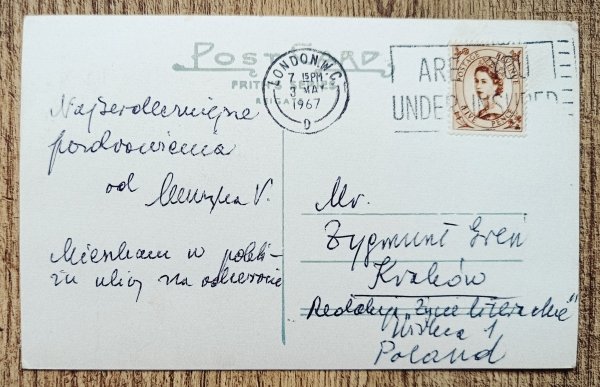 Post Card
LONDON. W.C.
7 15 PM
3 MAY
1967
D
UNDER
Najserdeczniejsze
pozdrowienia
od
V.
Mieszkam w pobli-
żu ulicy na odwrocie
Mr.
Zygmunt Greń
Kraków
Redakcja "Życie Literackie"
Wiślna 1
Poland